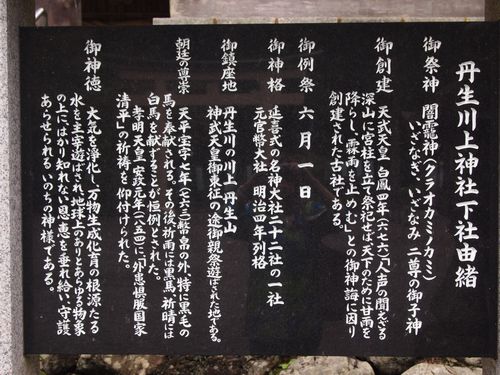 丹生川上神社下社由緒
御祭神 闇龗神(クラオカミノカミ)
いざなぎ、いざなみ 二尊の御子神
御創建 天武天皇 白鳳四年(六七六)「人声の聞えざる
深山に宮柱を立て祭祀せば、天下のために甘雨を
降らし、霖雨を止めむ」との御神誨に因り
創建された古社である。
御例祭 六月一日
御神格 延喜式の名神大社、二十二社の一社
元官幣大社 明治四年列格
御鎮座地 丹生川の川上 丹生山
神武天皇御東征の途御親祭遊ばされた地である。
朝廷の尊崇 天平宝字七年(七六三)幣帛の外、特に黒毛の
馬を奉献される。その後祈雨には黒馬、祈晴には
白馬を献ずることが恒例とされた。
孝明天皇 安政元年(一八五四)に「外患惧服国家
清平」の祈祷を仰付けられた。
御神徳 大気を浄化し、万物生成化育の根源たる
水を主宰遊ばされ、地球上のありとあらゆる物象
の上にはかり知れない恩恵を垂れ給い、守護
あらせられる いのちの神様である。